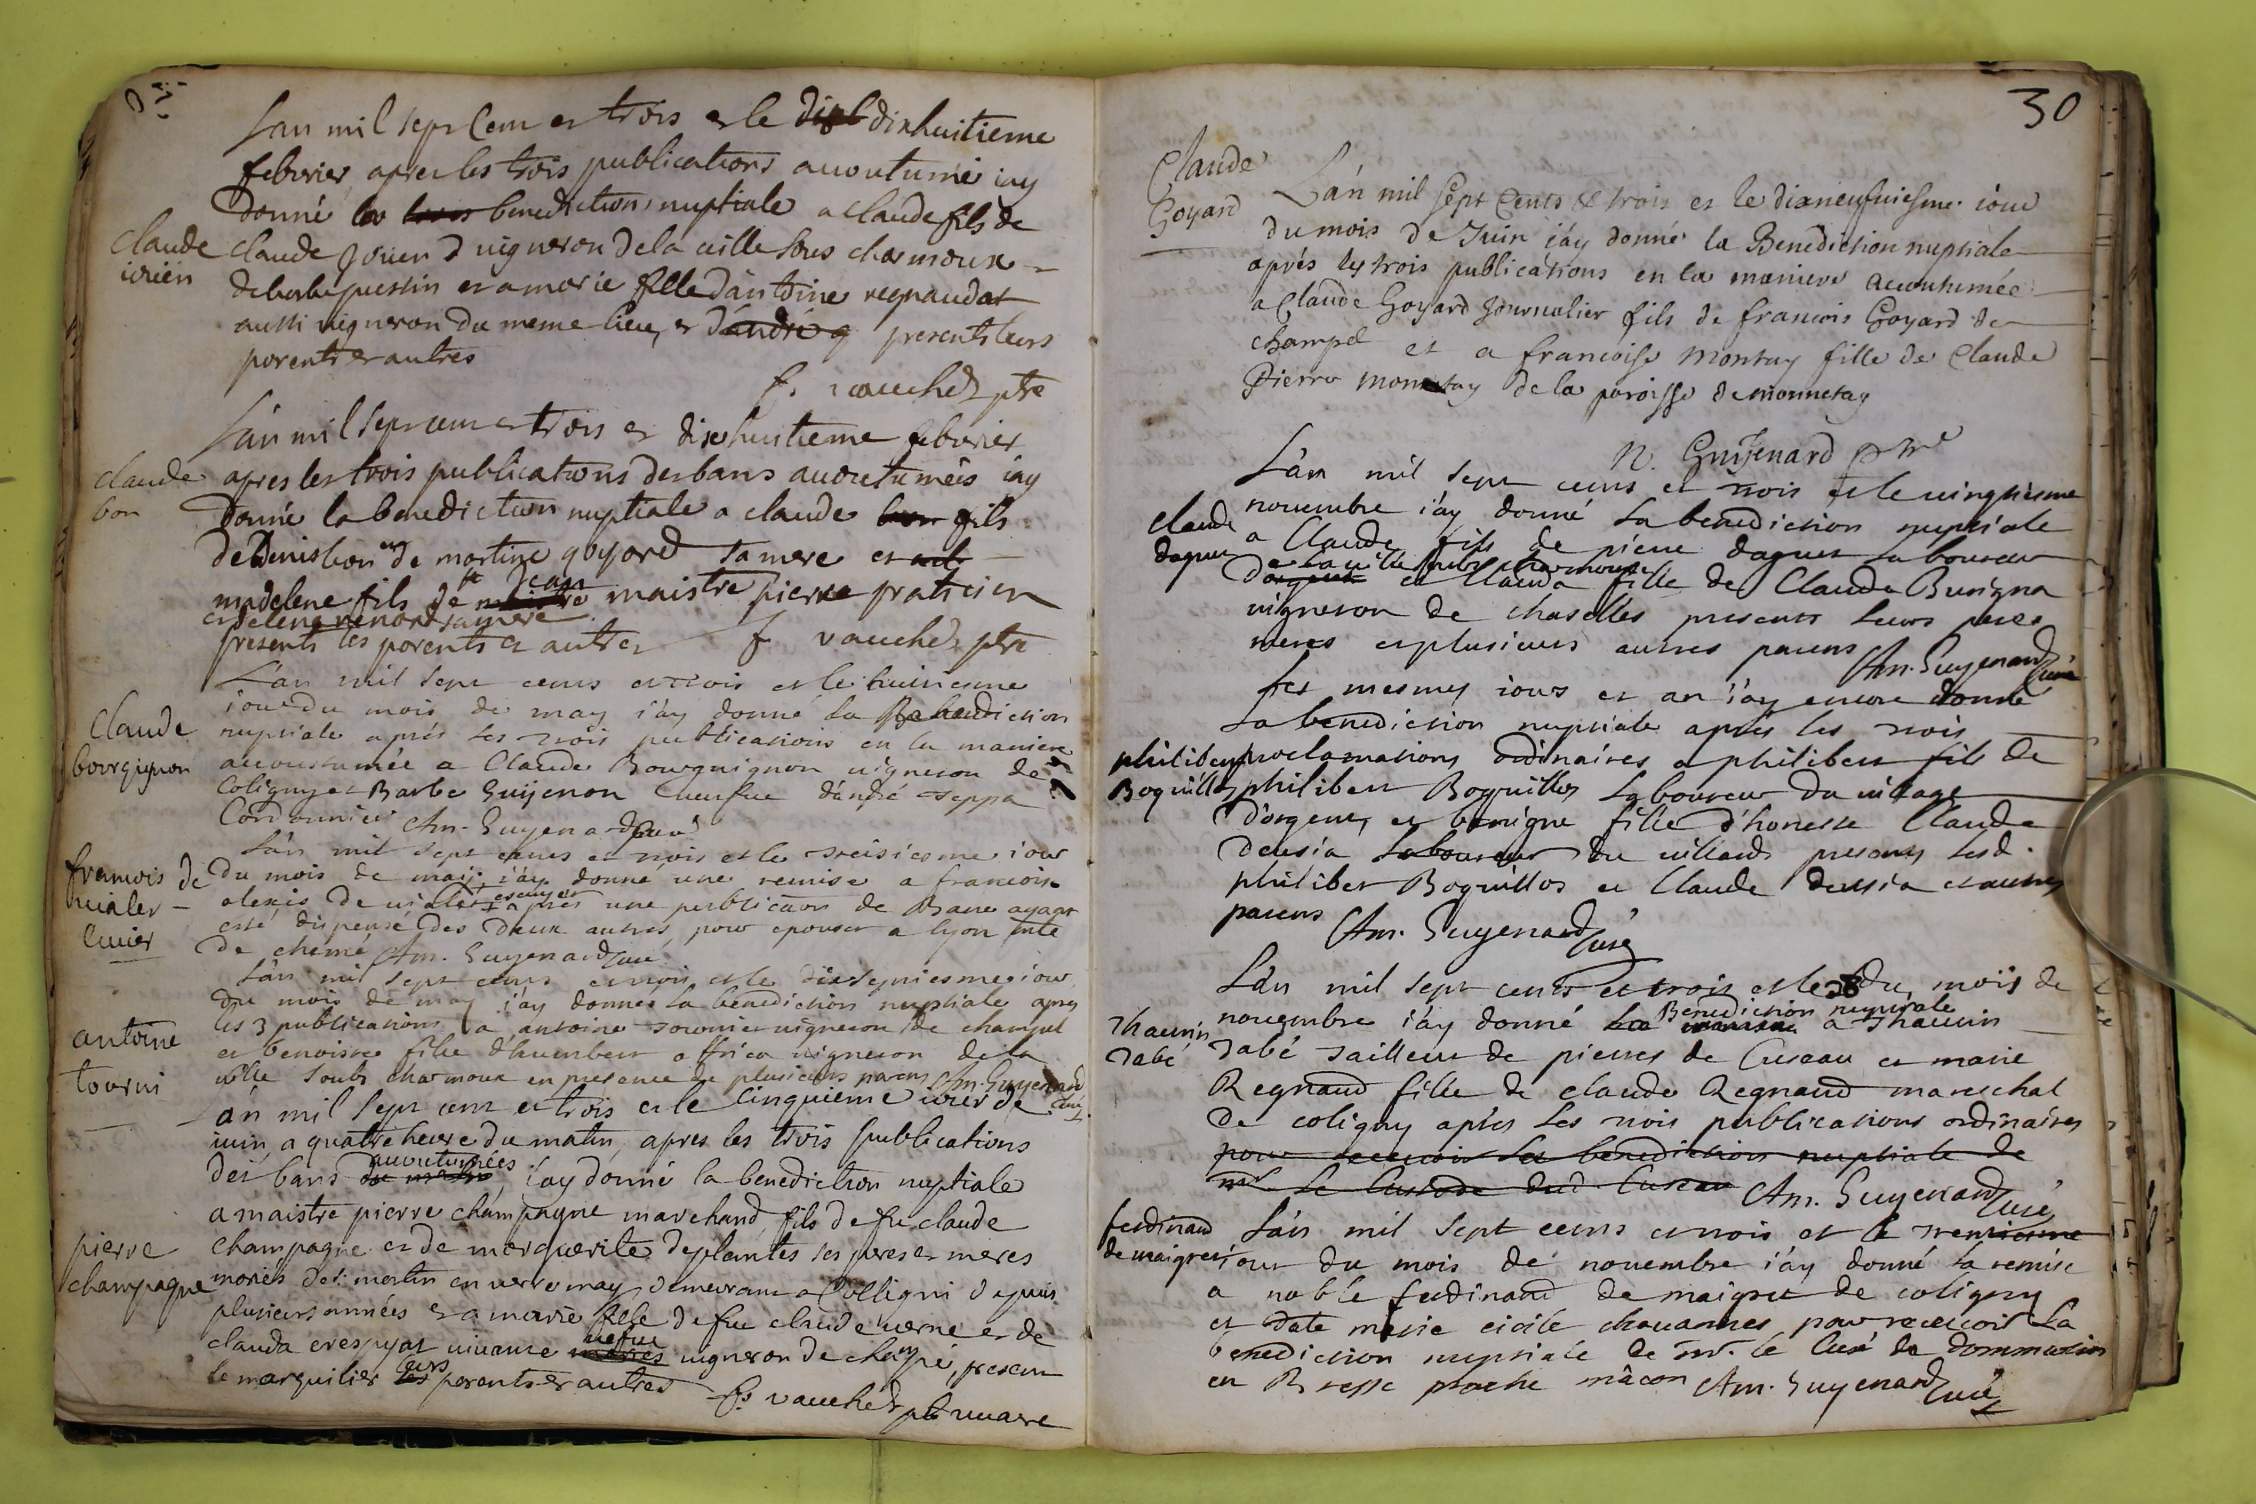 Lan mil sept Cent et trois et le dixhuitieme
febvrier apres les trois publications accoutumé iay
donné la benediction nuptiale a claude fils de
claude iouen
claude Jouen vigneron de la ville sous charmoux
de barbe pertin et a marie fille d'antoine regnaudat
aussi vigneron du meme lieu, et d'andré presents leurs
parents et autres
f. vaucher ptre
L'an mil sept cent et trois et dixhuitieme febvrier
claude bon
apres les trois publications des bans accoutumées iay
donné la benediction nuptiale a claude bon fils
de Denis bon et de martine goyard sa mere et
madelene fils de Jean maistre pierre praticien
et delene renard sa mere
presents les parents et autres f vaucher ptre
L'an mil sept cents et trois et le huitiesme
iour du mois de may i'ay donné la Benediction
Claude bourgignon
nuptiale aprés les trois publications en la maniere
accoustumée a Claude Bourguignon vigneron de
Coligny et Barbe Guyenon veufue d'andré seppa
Cordonnier Am. Guyenard curé
L'an mil sept cents et trois et le treisiesme iour
francois de vialet ecuier
du mois de may i'ay donné une remise a francois
alexis de vialet ecuyer apres une publication de Bans ayant
esté dispensé des deux autres, pour epouser a lyon
de chemé Am. Guyenard curé
L'an mil sept cents et trois et le dixseptiesme iour
du mois de may i'ay donnes la benediction nuptiale apres
antoine tourni
les 3 publications a antoine tournier vigneron de champel
et benoiste fille d'humbert vigneron de la
ville soubs charmoux en presence de plusieurs parens Am. Guyenard curé
L'an mil sept cent et trois et le cinquieme iour de
iuin, a quatre heure du matin, apres les trois publications
des bans accoutumées i'ay donné la benediction nuptiale
a maistre pierre champagne marchand, fils de fu claude
pierre champagne
champagne et de marguerite deplantes ses peres et meres
mariés de st. martin en verromay demeurant a Colligni depuis
plusieurs années et a marie fille de feu claude verne et de
clauda crespyat vivante vefue vigneron de champé, present
le marguilier leurs parents et autres
f. vaucher ptre vicaire
30
Claude Goyard
L'an mil sept Cents & trois et le dixneufuiesme iour
du mois de Juin i'ay donné la Benediction nuptiale
aprés les trois publications en la maniere accoutumée
a Claude Goyard Journalier fils de francois Goyard de
champel et a francoise Montay fille de Claude
Pierre monnetay de la paroisse de monnetay
N. Guyenard ptre
L'an mil sept cents et trois et le vingtiesme
novembre i'ay donné la benediction nuptiale
claude daguet
a Claude fils de pierre daguet laboureur
de la ville soubs charmoux
et Clauda fille de Claude Buvigna
vigneron de chaselles presents leurs peres
meres et plusieurs autres parens Am. Guyenard curé
Les mesmes iours et an i'ay encore donné
la benediction nuptiale aprés les trois
philibert Boquillos
proclamations ordinaires a philibert fils de
philibert Boquillos laboureur du village
d'orgent, et benigne fille d'honeste Claude
deusia laboureur du villard presents lesd.
philiber Boquillos et Claude deussia et autres
parens Am. Guyenard curé
L'an mil sept cents et trois et le 28 du mois de
novembre i'ay donné la Benediction nuptiale a thaurin
thaurin rabé
rabé tailleur de pierres de Cuseau et marie
Regnaud fille de claude Regnaud mareschal
de coligny aprés les trois publications ordinaires
pour recevoir la benediction nuptiale de
mr le Custode dud. Cuseau Am. Guyenard curé
ferdinand de maigret
L'an mil sept cents et trois et le trentiesme
iour du mois de novembre i'ay donné la remise
a noble ferdinand de maigret de coligny
et date marie cicile chavannes, pour recevoir la
benediction nuptiale de mr. le curé de dommartin
en Bresse proche mâcon Am. Guyenard curé